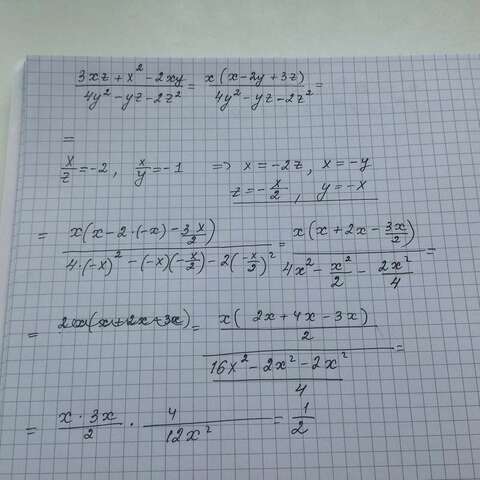 (3xz + x² - 2xy)/(4y² - yz - 2z²) = x(x - 2y + 3z)/(4y² - yz - 2z²) =
=
x/z = -2, x/y = -1 => x = -2z, x = -y
z = -x/2, y = -x
= x(x - 2·(-x) - 3x/2)/(4·(-x)² - (-x)(-x/2) - 2(-x/2)²) = x(x + 2x - 3x/2)/(4x² - x²/2 - 2x²/4) =
= = (x(2x + 4x - 3x)/2)/((16x² - 2x² - 2x²)/4) =
= (x · 3x)/2 · 4/(12x²) = 1/2